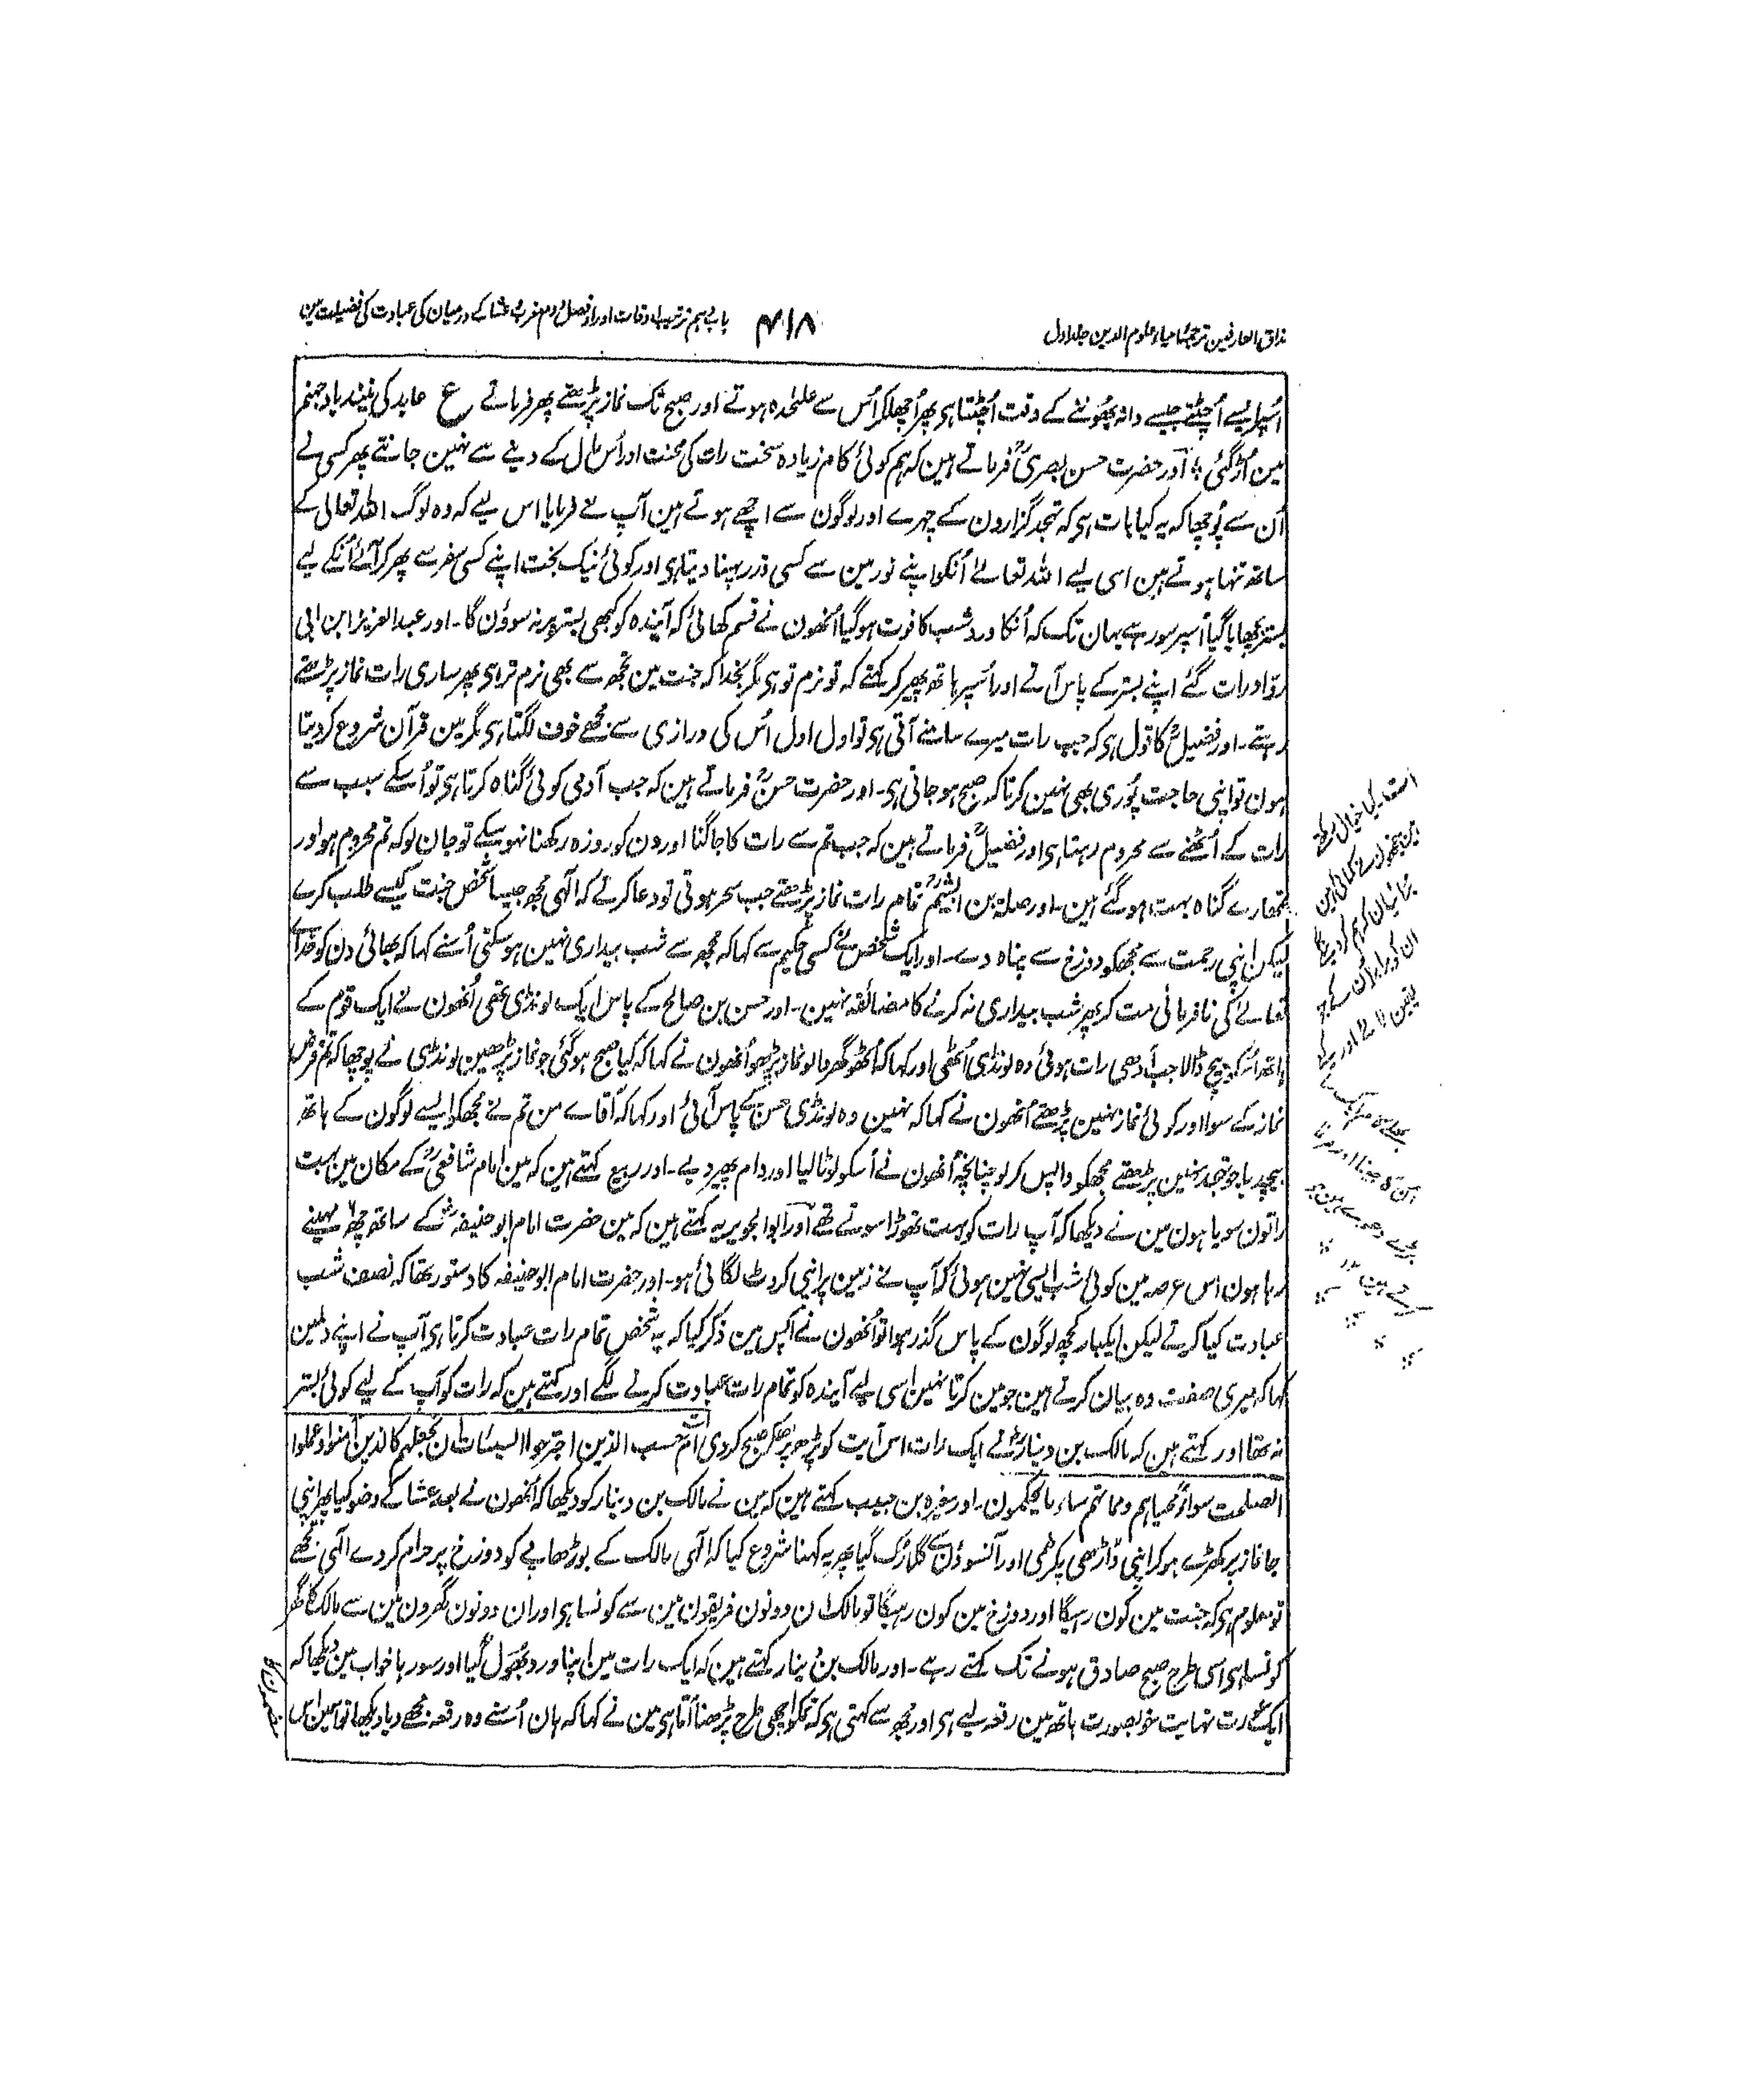 مذاق العارفین ترجمۂ احیاء علوم الدین جلد اول
۴۱۸
باب دہم ترتیب اوقات اور اوراد فصل دوم مغرب و عشا کے درمیان کی عبادت کی فضیلت مین
اُسپر ایسے اُچٹتے جیسے دانہ بھوننے کے وقت اُچٹتا ہی پھر اُچھلکر اُس سے علحدہ ہوتے اور صبح تک نماز پڑھتے پھر فرماتے ع عابد کی نیند یاد جہنم
مین اُڑ گئی ؛ اور حضرت حسن بصریؒ فرماتے ہین کہ ہم کوئی کام زیادہ سخت رات کی محنت اور اُس مال کے دینے سے نہین جانتے پھر کسی نے
اُن سے پوچھا کہ یہ کیا بات ہی کہ تہجد گزارون کے چہرے اور لوگون سے اچھے ہوتے ہین آپ نے فرمایا اس لیے کہ وہ لوگ اللہ تعالی کے
ساتھ تنہا ہوتے ہین اسی لیے اللہ تعالے اُنکو اپنے نور مین سے کسی قدر پہنا دیتا ہی اور کوئی نیک بخت اپنے کسی سفر سے پھر کر آئے اُنکے لیے
بستر بچھایا گیا اُسپر سو رہے یہان تک کہ اُنکا ورد شب کا فوت ہو گیا اُنھون نے قسم کھائی کہ آیندہ کو کبھی بستر پر نہ سوؤن گا۔ اور عبد العزیز ابن ابی
روّاد رات گئے اپنے بستر کے پاس آتے اور اُسپر ہاتھ پھیر کر کہتے کہ تو نرم تو ہی مگر بخدا کہ جنت مین تجھ سے بھی نرم تر ہی پھر ساری رات نماز پڑھتے
رہتے۔ اور فضیلؒ کا قول ہی کہ جب رات میرے سامنے آتی ہی تو اول اول اُس کی درازی سے مجھے خوف لگتا ہی مگر مین قرآن شروع کر دیتا
ہون تو اپنی حاجت پوری بھی نہین کرتا کہ صبح ہو جاتی ہی۔ اور حضرت حسنؒ فرماتے ہین کہ جب آدمی کوئی گناہ کرتا ہی تو اُسکے سبب سے
رات کے اُٹھنے سے محروم رہتا ہی اور فضیلؒ فرماتے ہین کہ جب تم سے رات کا جاگنا اور دن کو روزہ رکھنا نہو سکے تو جان لو کہ تم محروم ہو اور
تمھارے گناہ بہت ہو گئے ہین۔ اور صلہ بن اشیمؒ تمام رات نماز پڑھتے جب سحر ہوتی تو دعا کرتے کہ الٰہی مجھ جیسا شخص جنت کیسے طلب کرے
لیکن اپنی رحمت سے مجھکو دوزخ سے پناہ دے۔ اور ایک شخص نے کسی حکیم سے کہا کہ مجھ سے شب بیداری نہین ہو سکتی اُسنے کہا کہ بھائی دن کو خداے
تعالے کی نافرمانی مت کر پھر شب بیداری نہ کرنے کا مضائقہ نہین۔ اور حسن بن صالح کے پاس ایک لونڈی تھی اُنھون نے ایک قوم کے
ہاتھ اُسکو بیچ ڈالا جب آدھی رات ہوئی وہ لونڈی اُٹھی اور کہا کہ اُٹھو گھر والو نماز پڑھو اُنھون نے کہا کہ کیا صبح ہو گئی جو نماز پڑھین لونڈی نے پوچھا کہ تم فرض
نماز کے سوا اور کوئی نماز نہین پڑھتے اُنھون نے کہا کہ نہین وہ لونڈی حسن کے پاس آئی اور کہا کہ آقاے من تم نے مجھکو ایسے لوگون کے ہاتھ
بیچدیا جو تہجد نہین پڑھتے مجھکو واپس کر لو چنانچہ اُنھون نے اُسکو لوٹا لیا اور دام پھیر دیے۔ اور ربیع کہتے ہین کہ مین امام شافعیؒ کے مکان مین بہت
راتون سویا ہون مین نے دیکھا کہ آپ رات کو بہت تھوڑا سوتے تھے اور ابو الجویریہ کہتے ہین کہ مین حضرت امام ابو حنیفہؒ کے ساتھ چھ مہینے
رہا ہون اس عرصہ مین کوئی شب ایسی نہین ہوئی کہ آپ نے زمین پر اپنی کروٹ لگائی ہو۔ اور حضرت امام ابو حنیفہ کا دستور تھا کہ نصف شب
عبادت کیا کرتے لیکن ایکبار کچھ لوگون کے پاس گذر ہوا تو اُنھون نے آپس مین ذکر کیا کہ یہ شخص تمام رات عبادت کرتا ہی آپ نے اپنے دلمین
کہا کہ میری صفت وہ بیان کرتے ہین جو مین کرتا نہین اسی لیے آیندہ کو تمام رات عبادت کرنے لگے اور کہتے ہین کہ رات کو آپ کے لیے کوئی بستر
نہ تھا اور کہتے ہین کہ مالک بن دینارؒ نے ایک رات اس آیت کو پڑھ پڑھکر صبح کردی ام حسب الذین اجترحوا السیئات ان نجعلہم کالذین آمنوا و عملوا
الصلحت سواءً محیاہم و مماتہم ساء ما یحکمون۔ اور مغیرہ بن حبیب کہتے ہین کہ مین نے مالک بن دینار کو دیکھا کہ اُنھون نے بعد عشا کے وضو کیا پھر اپنی
جانماز پر کھڑے ہو کر اپنی ڈاڑھی پکڑی اور آنسوؤن سے گلا رُک گیا پھر یہ کہنا شروع کیا کہ الٰہی مالک کے بوڑھاپے کو دوزخ پر حرام کر دے الٰہی تجھے
تو معلوم ہی کہ جنت مین کون رہیگا اور دوزخ مین کون رہیگا تو مالک ان دونون فریقون مین سے کونسا ہی اور ان دونون گھرون مین سے مالک کا گھر
کونسا ہی اسی طرح صبح صادق ہونے تک کہتے رہے۔ اور مالک بن دینار کہتے ہین کہ ایک رات مین اپنا ورد بھول گیا اور سو رہا خواب مین دیکھا کہ
ایک عورت نہایت خوبصورت ہاتھ مین رقعہ لیے ہی اور مجھ سے کہتی ہی کہ تمکو اچھی طرح پڑھنا آتا ہی مین نے کہا کہ ہان اُسنے وہ رقعہ مجھے دیا دیکھا تو اُسمین اس
کیا خیال رکھتے
ہین جنھون نے کمائی ہین
برائیان کہ ہم کر دینگے
ان کو برابر اُن کے جو
یقین لائے اور کیے
بھلے
اُن کا جینا اور مرنا
بڑے دعوے ہین جو
کرتے ہین